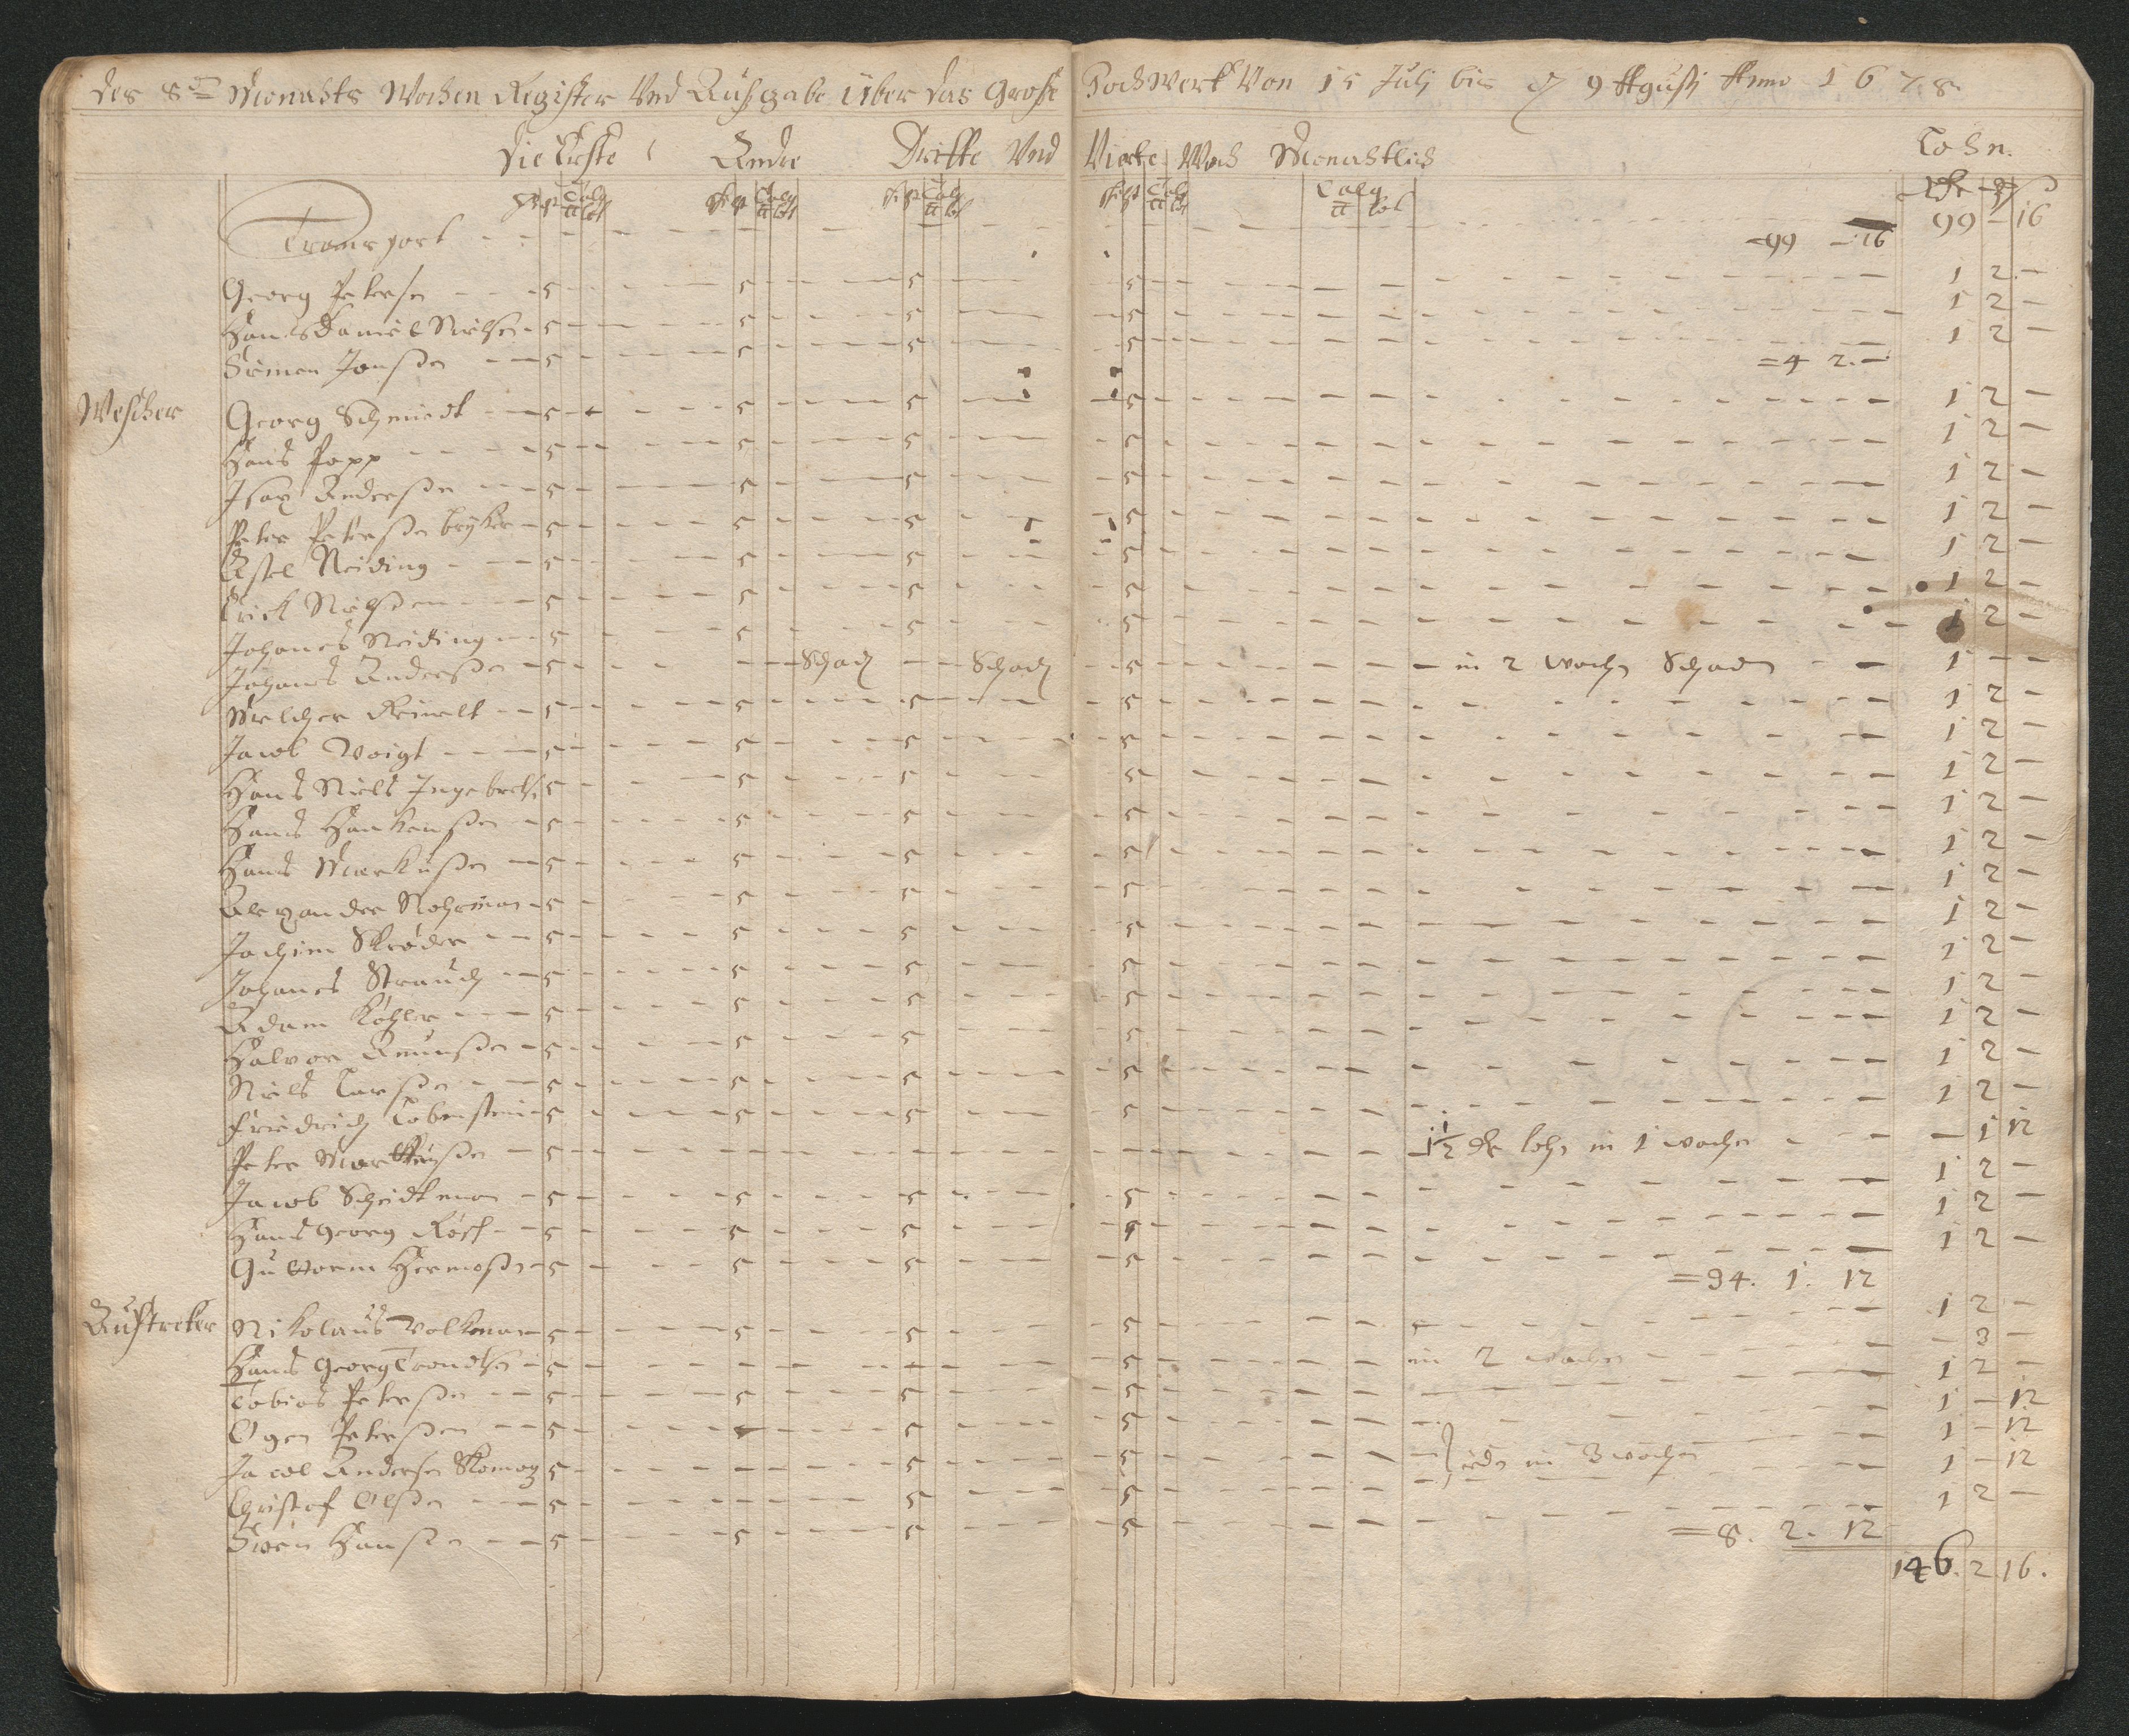 des 8ten Monahts Wochen Register Und Außgabe über das Große Pochwerk Von 15 Julj bis d 9 Agustj Anno 1678.
die Erste Andre Dritte Und Vierte Woch Monahtlich Lohn.
Talg Talg Talg Talg Talg
Transport - - - =99 - 16 99 - 16
Georg Petersen - 5 - 5 - 5 - 5 - 1 2 -
Hans Daniel Nielsen - 5 - 5 - 5 - 5 - 1 2 -
Simen Jonsen - 5 - 5 - 5 - 5 - 1 2 -
=4 2. -
Wescher Georg Schmiedt - 5 - 5 - 5 - 5 - 1 2 -
Hans Popp - 5 - 5 - 5 - 5 - 1 2 -
Isax Andersen - 5 - 5 - 5 - 5 - 1 2 -
Peter Petersen bryker - 5 - 5 - 5 - 5 - 1 2 -
Axel Neiding - 5 - 5 - 5 - 5 - 1 2 -
Erick Nielsen - 5 - 5 - 5 - 5 - 1 2 -
Johanes Neiding - 5 - 5 - 5 - 5 - 1 2 -
Johanes Andersen - 5 - Schach - Schach - 5 - in 2 wochen Schaden - 1 - -
Melcher Reinelt - 5 - 5 - 5 - 5 - 1 2 -
Jacob Voigt - 5 - 5 - 5 - 5 - 1 2 -
Hans Niels Ingebrets 5 - 5 - 5 - 5 - 1 2 -
Hans Hankensen - 5 - 5 - 5 - 5 - 1 2 -
Hans Markusen - 5 - 5 - 5 - 5 - 1 2 -
Alexander Rohrman - 5 - 5 - 5 - 5 - 1 2 -
Jochim Skröder - 5 - 5 - 5 - 5 - 1 2 -
Johanes Strauch - 5 - 5 - 5 - 5 - 1 2 -
Adam Köhler - 5 - 5 - 5 - 5 - 1 2 -
Halvor Amunsen - 5 - 5 - 5 - 5 - 1 2 -
Niels Larsen - 5 - 5 - 5 - 5 - 1 2 -
Friedrich Lobenstein - 5 - 5 - 5 - 5 - 1 2 -
Peter Markusen - 5 - 1½ lohn in 1 wochen - - 1 12
Jacob Scheidtman - 5 - 5 - 5 - 5 - 1 2 -
Hans Georg Rösch - 5 - 5 - 5 - 5 - 1 2 -
Guttorm Hermosen - 5 - 5 - 5 - 5 - 1 2 -
=34. 1. 12
Austreker Nikolaus Volkman - 5 - 5 - 5 - 5 - 1 2 -
Hans Georg Trondtsen - 5 - 5 - in 2 wochen - - 3 -
Tobias Petersen - 5 - 5 - 5 - 5 - 1 2 -
Ogen Petersen - 5 - 5 - 5 - 1 - 12
Jacob Andersen - 5 - 5 - 5 - jeder in 3 wochen - 1 - 12
Christof Olsen - 5 - 5 - 5 - 1 - 12
Swen Hansen - 5 - 5 - 5 - 5 - 1 2 -
=8. 2. 12
146. 2 16.